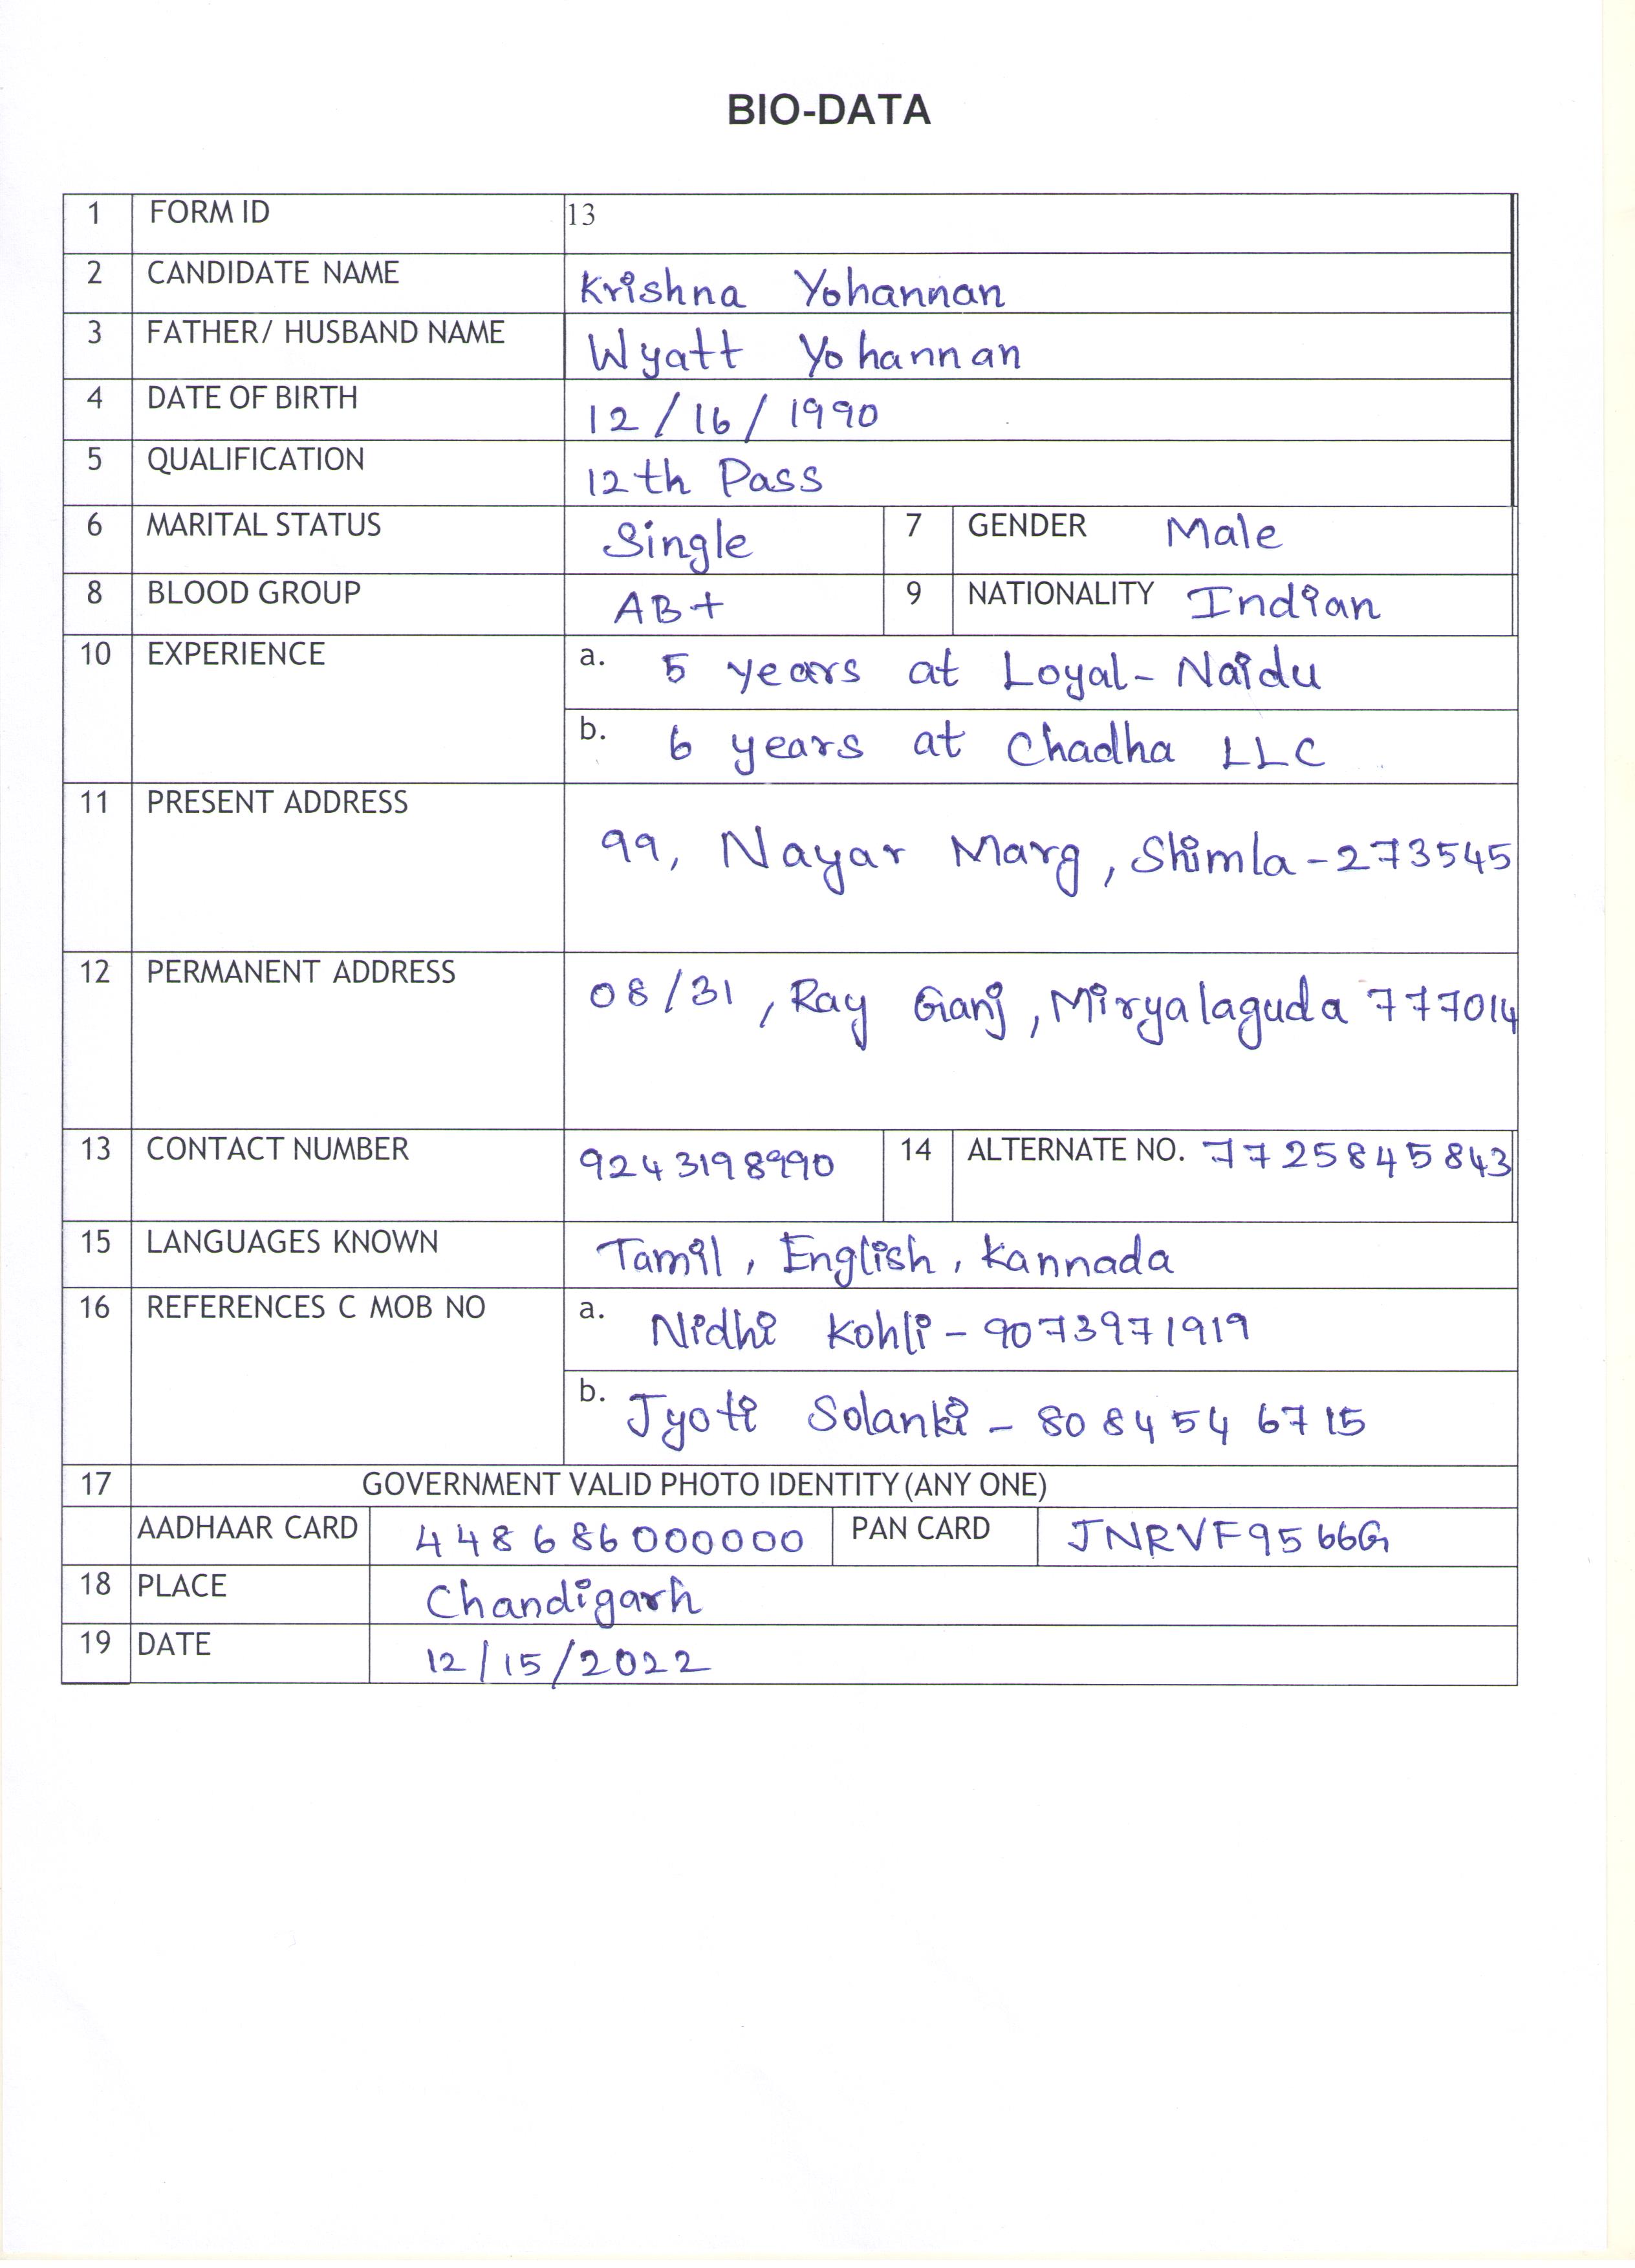 BIO-DATA
1 FORM ID 13
2 CANDIDATE NAME Krishna Yohannan
3 FATHER/ HUSBAND NAME Wyatt Yohannan
4 DATE OF BIRTH 12/16/1990
5 QUALIFICATION 12th Pass
6 MARITAL STATUS Single 7 GENDER Male
8 BLOOD GROUP AB+ 9 NATIONALITY Indian
10 EXPERIENCE a. 5 years at Loyal-Naidu
b. 6 years at Chadha LLC
11 PRESENT ADDRESS 99, Nayar Marg, Shimla-273545
12 PERMANENT ADDRESS 08/31, Ray Ganj, Miryalaguda 777014
13 CONTACT NUMBER 9243198990 14 ALTERNATE NO. 7725845843
15 LANGUAGES KNOWN Tamil, English, Kannada
16 REFERENCES C MOB NO a. Nidhi Kohli - 9073971919
b. Jyoti Solanki - 8084546715
17 GOVERNMENT VALID PHOTO IDENTITY (ANY ONE)
AADHAAR CARD 448686000000 PAN CARD JNRVF9566G
18 PLACE Chandigarh
19 DATE 12/15/2022